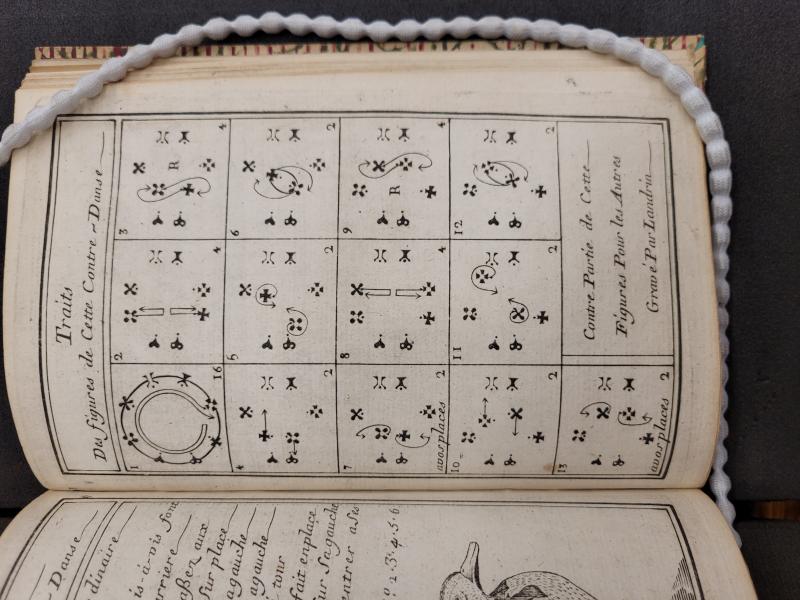 Traits
Des figures de Cette Contre-Danse
1
16
2
4
3
R
4
4
2
5
2
6
2
7
2
a vos places
8
4
9
R
4
10
2
11
2
12
2
13
2
a vos places
Contre Partie de Cette
Figures Pour les Autres
Gravé Par Landrin
Danse
dinaire
is-à-vis font
arriere
aßez aux
Sur place
a gauche
a gauche
tour
fait en place
Sur Sa gauche
entrer a Ses
2. 3. 4. 5. 6